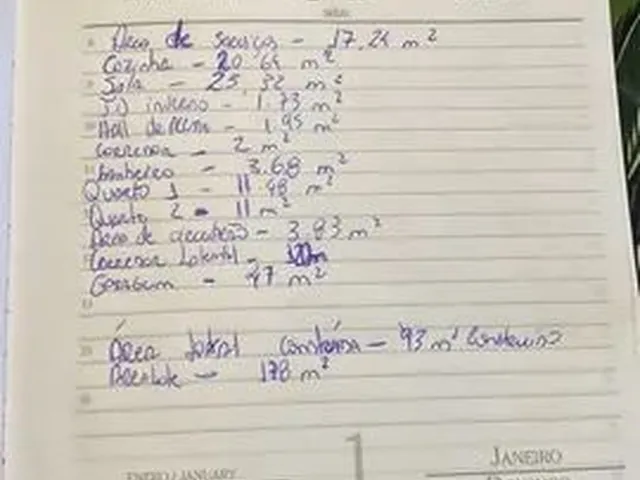 Área de serviço - 17.24 m²
Cozinha - 20.64 m²
Sala - 25.32 m²
JD inverno - 1.73 m²
Hall de - 1.95 m²
Corredor - 2 m²
banheiro - 3.68 m²
Quarto 1 - 11.48 m²
Quarto 2 - 11 m²
Área de - 3.83 m²
Corredor Lateral -
Garagem - 47 m²
Área total construída - 93 m²
178 m²
ENERO / JANUARY
1
JANEIRO